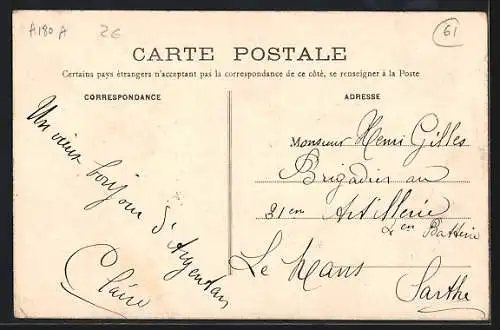 A180 A
2€
61
CARTE POSTALE
Certains pays étrangers n'acceptent pas la correspondance de ce côté, se renseigner à la Poste
CORRESPONDANCE
Un vieux
bonjour d'Argentan
Claire
ADRESSE
Monsieur Henri Gilles
Brigadier au
31em Artillerie
2em Batterie
Le Mans
Sarthe